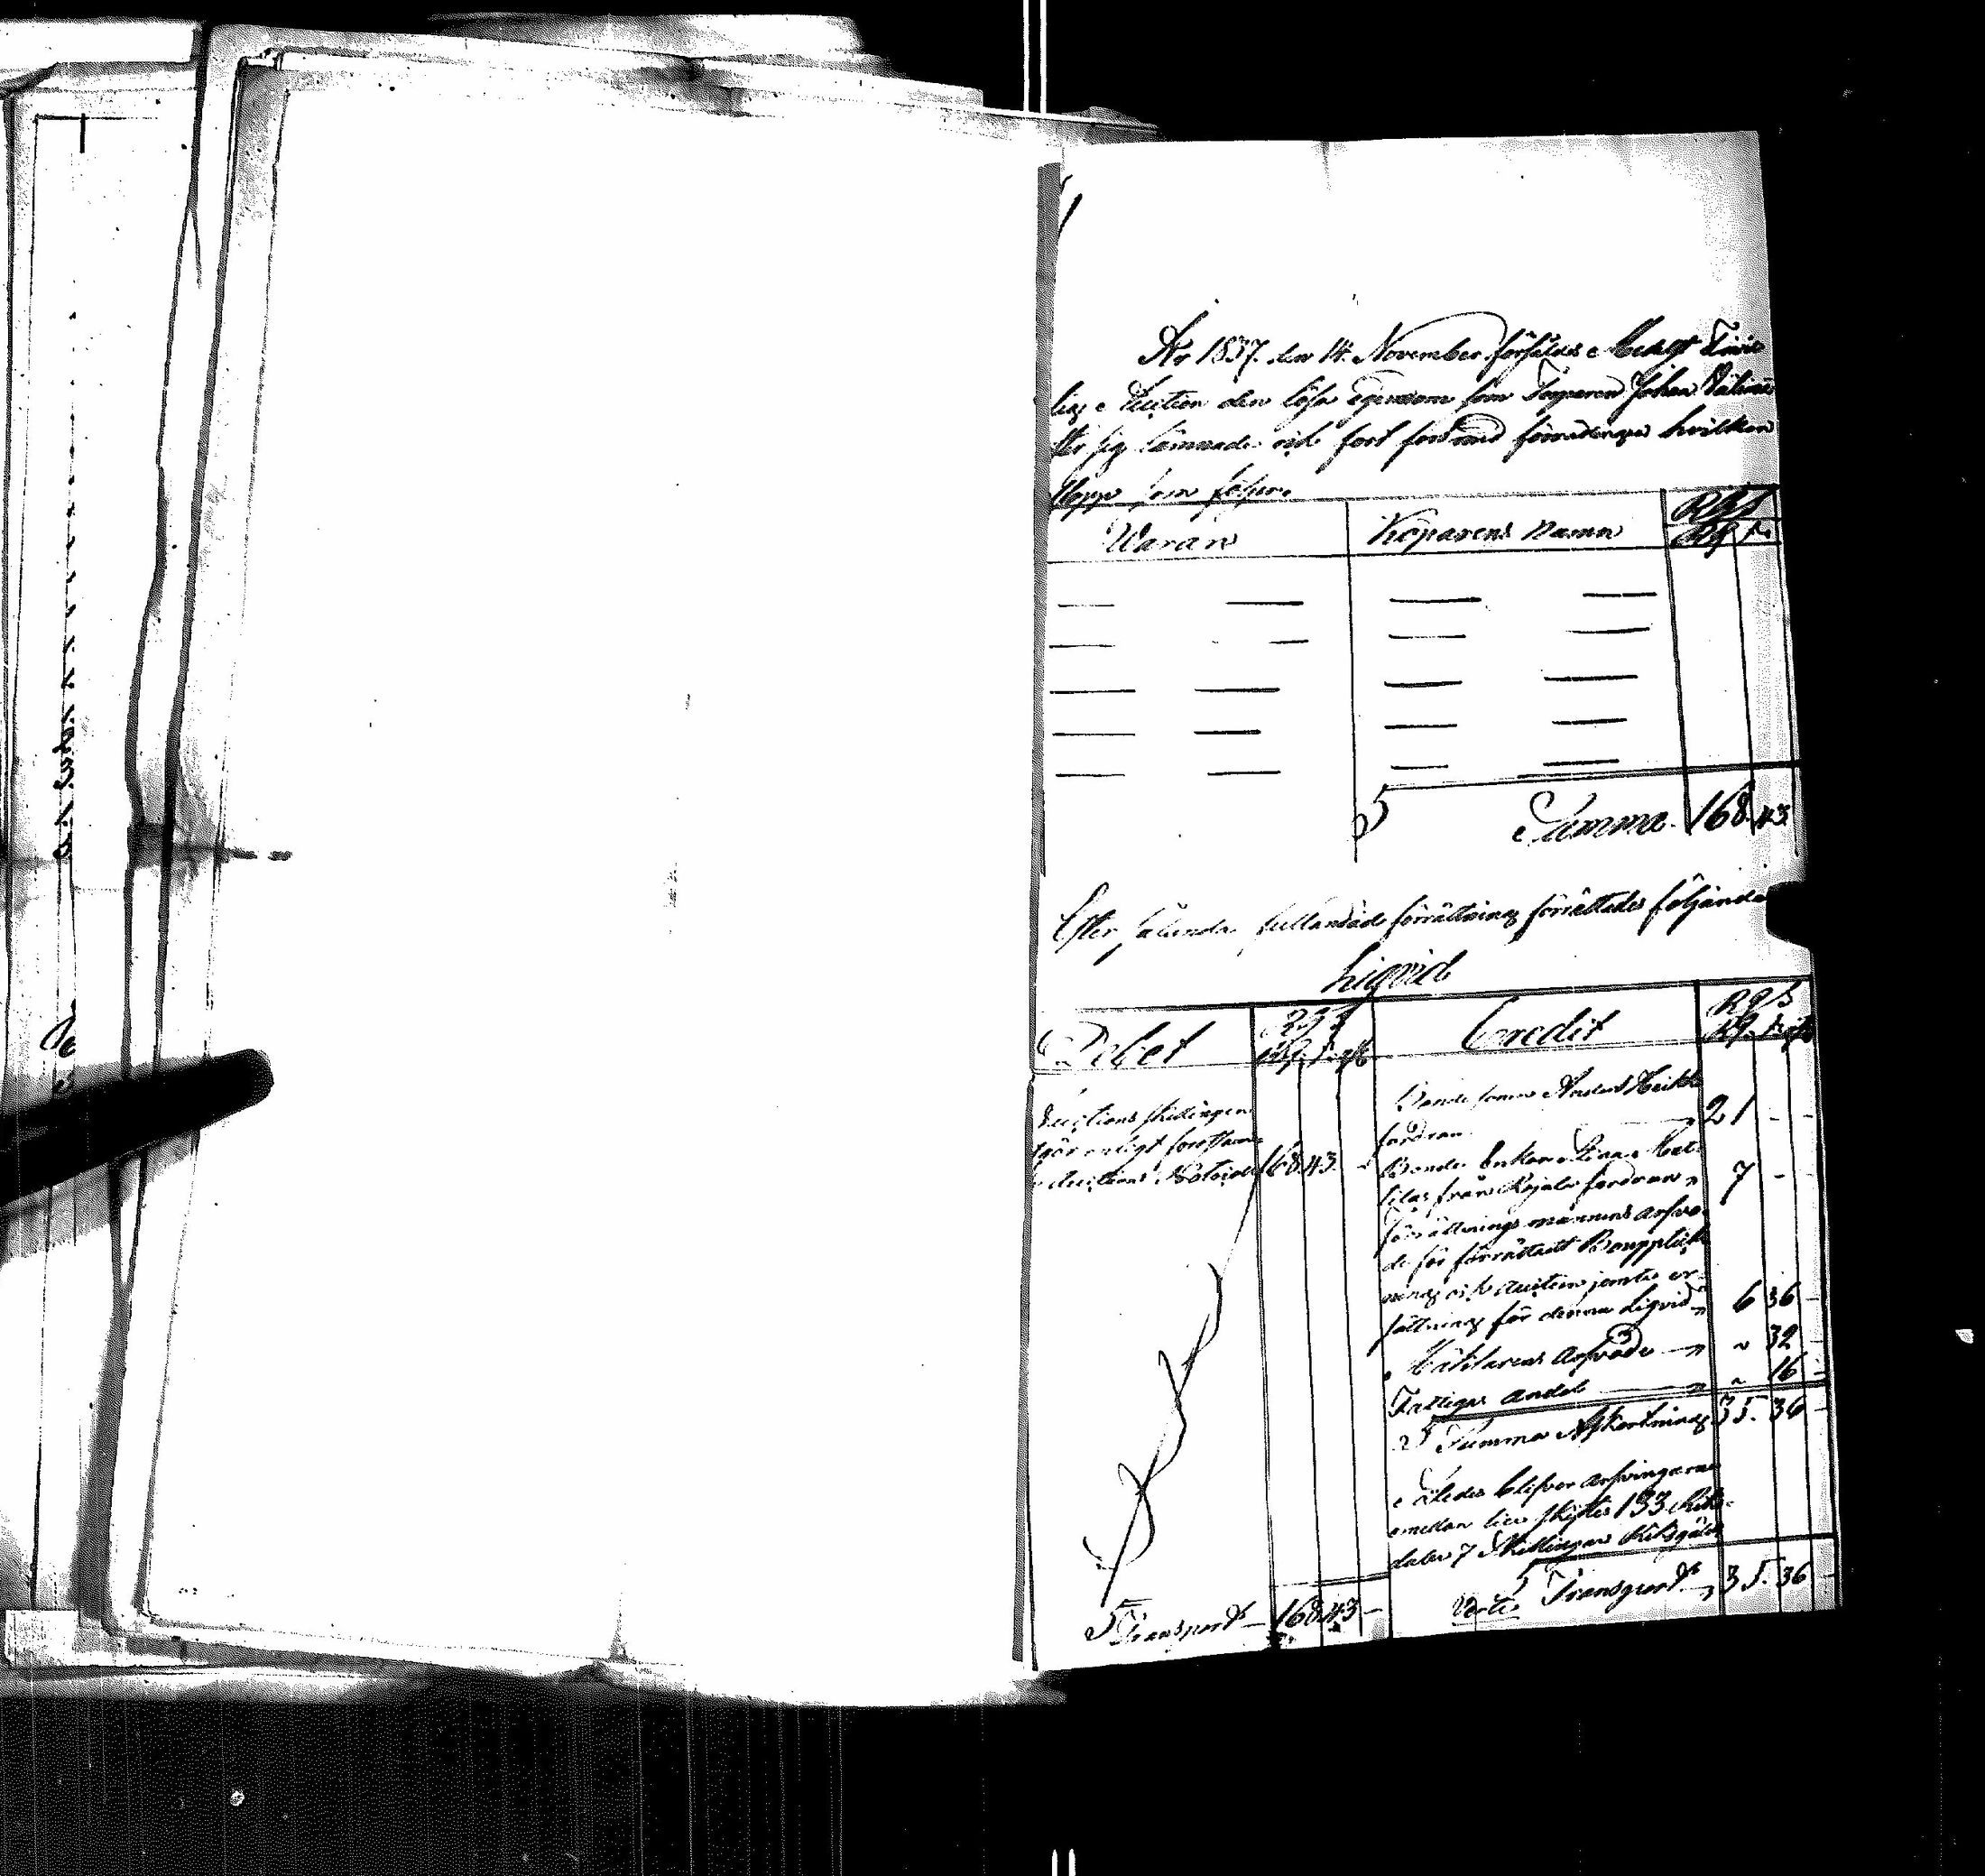 År 1837. den 14. November försåldes medelst Frivil
lig Auction den lösa egendom som Torparen Johan
efter sig lämnade och fort förrättningen hvilken
aflopp som följer.
Waran Köparens namn Rgs
Rg s
Summa 168 43
Efter sålunda fulländade förrättning förrättades följande
Liqvid
Debet Rgs Credit Rgs
Auctions skillingen
utgör enligt
Auctions Notoriet 168 43 -
Bonde sonen Anders Heikki
fordran 21 - -
Bonde Enkan Lisa Mat
tilas från fordran 7 - -
Förrättnings mannens arfvo
de för förrättadt Bouppteck
ning och Auction jemte er-
sättning för denna Liqvid 6 36 -
arfvode 32 -
Fattigas andel 16 -
Summa Afkortning 35. 36 -
Således blifver arfvingarne
emellan till skiftes 133 Riks-
daler 7 Skillingar Riksgäld
Transport 168 43 -
Verte Transport 35. 36 -